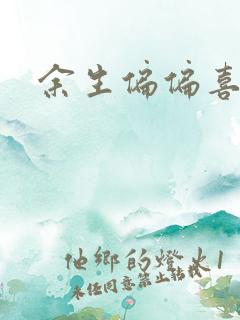 余生偏偏喜
他鄉的燈火1
未经同意禁止转载